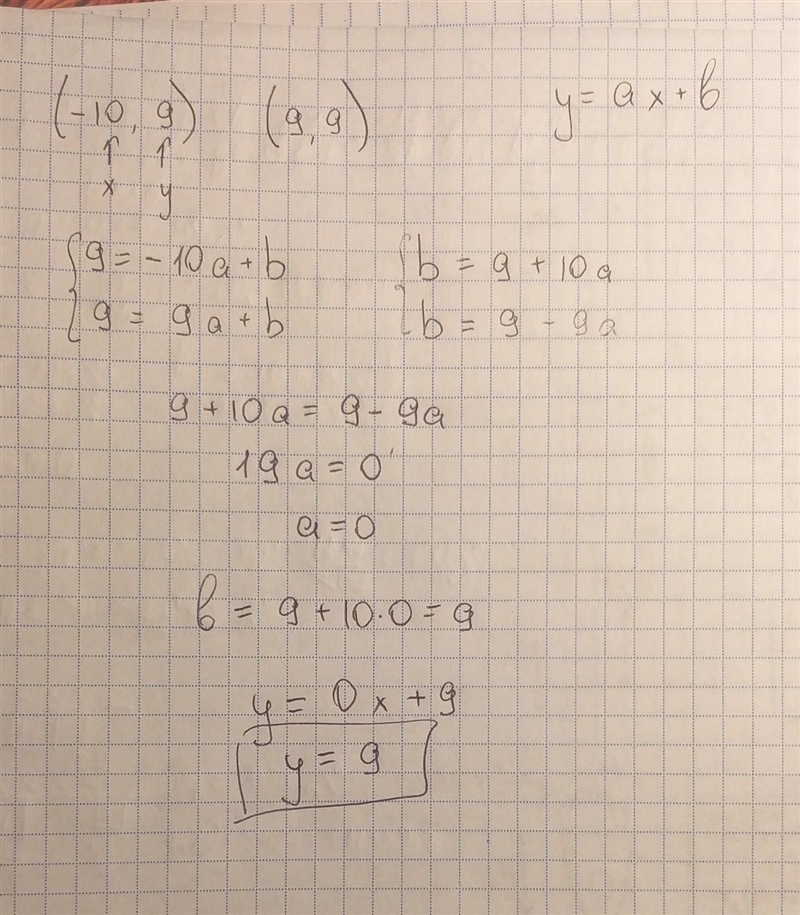 (-10, 9) (9, 9) y = ax + b
↑ ↑
x y
{ 9 = -10a + b { b = 9 + 10a
{ 9 = 9a + b { b = 9 - 9a
9 + 10a = 9 - 9a
19a = 0
a = 0
b = 9 + 10·0 = 9
y = 0x + 9
y = 9